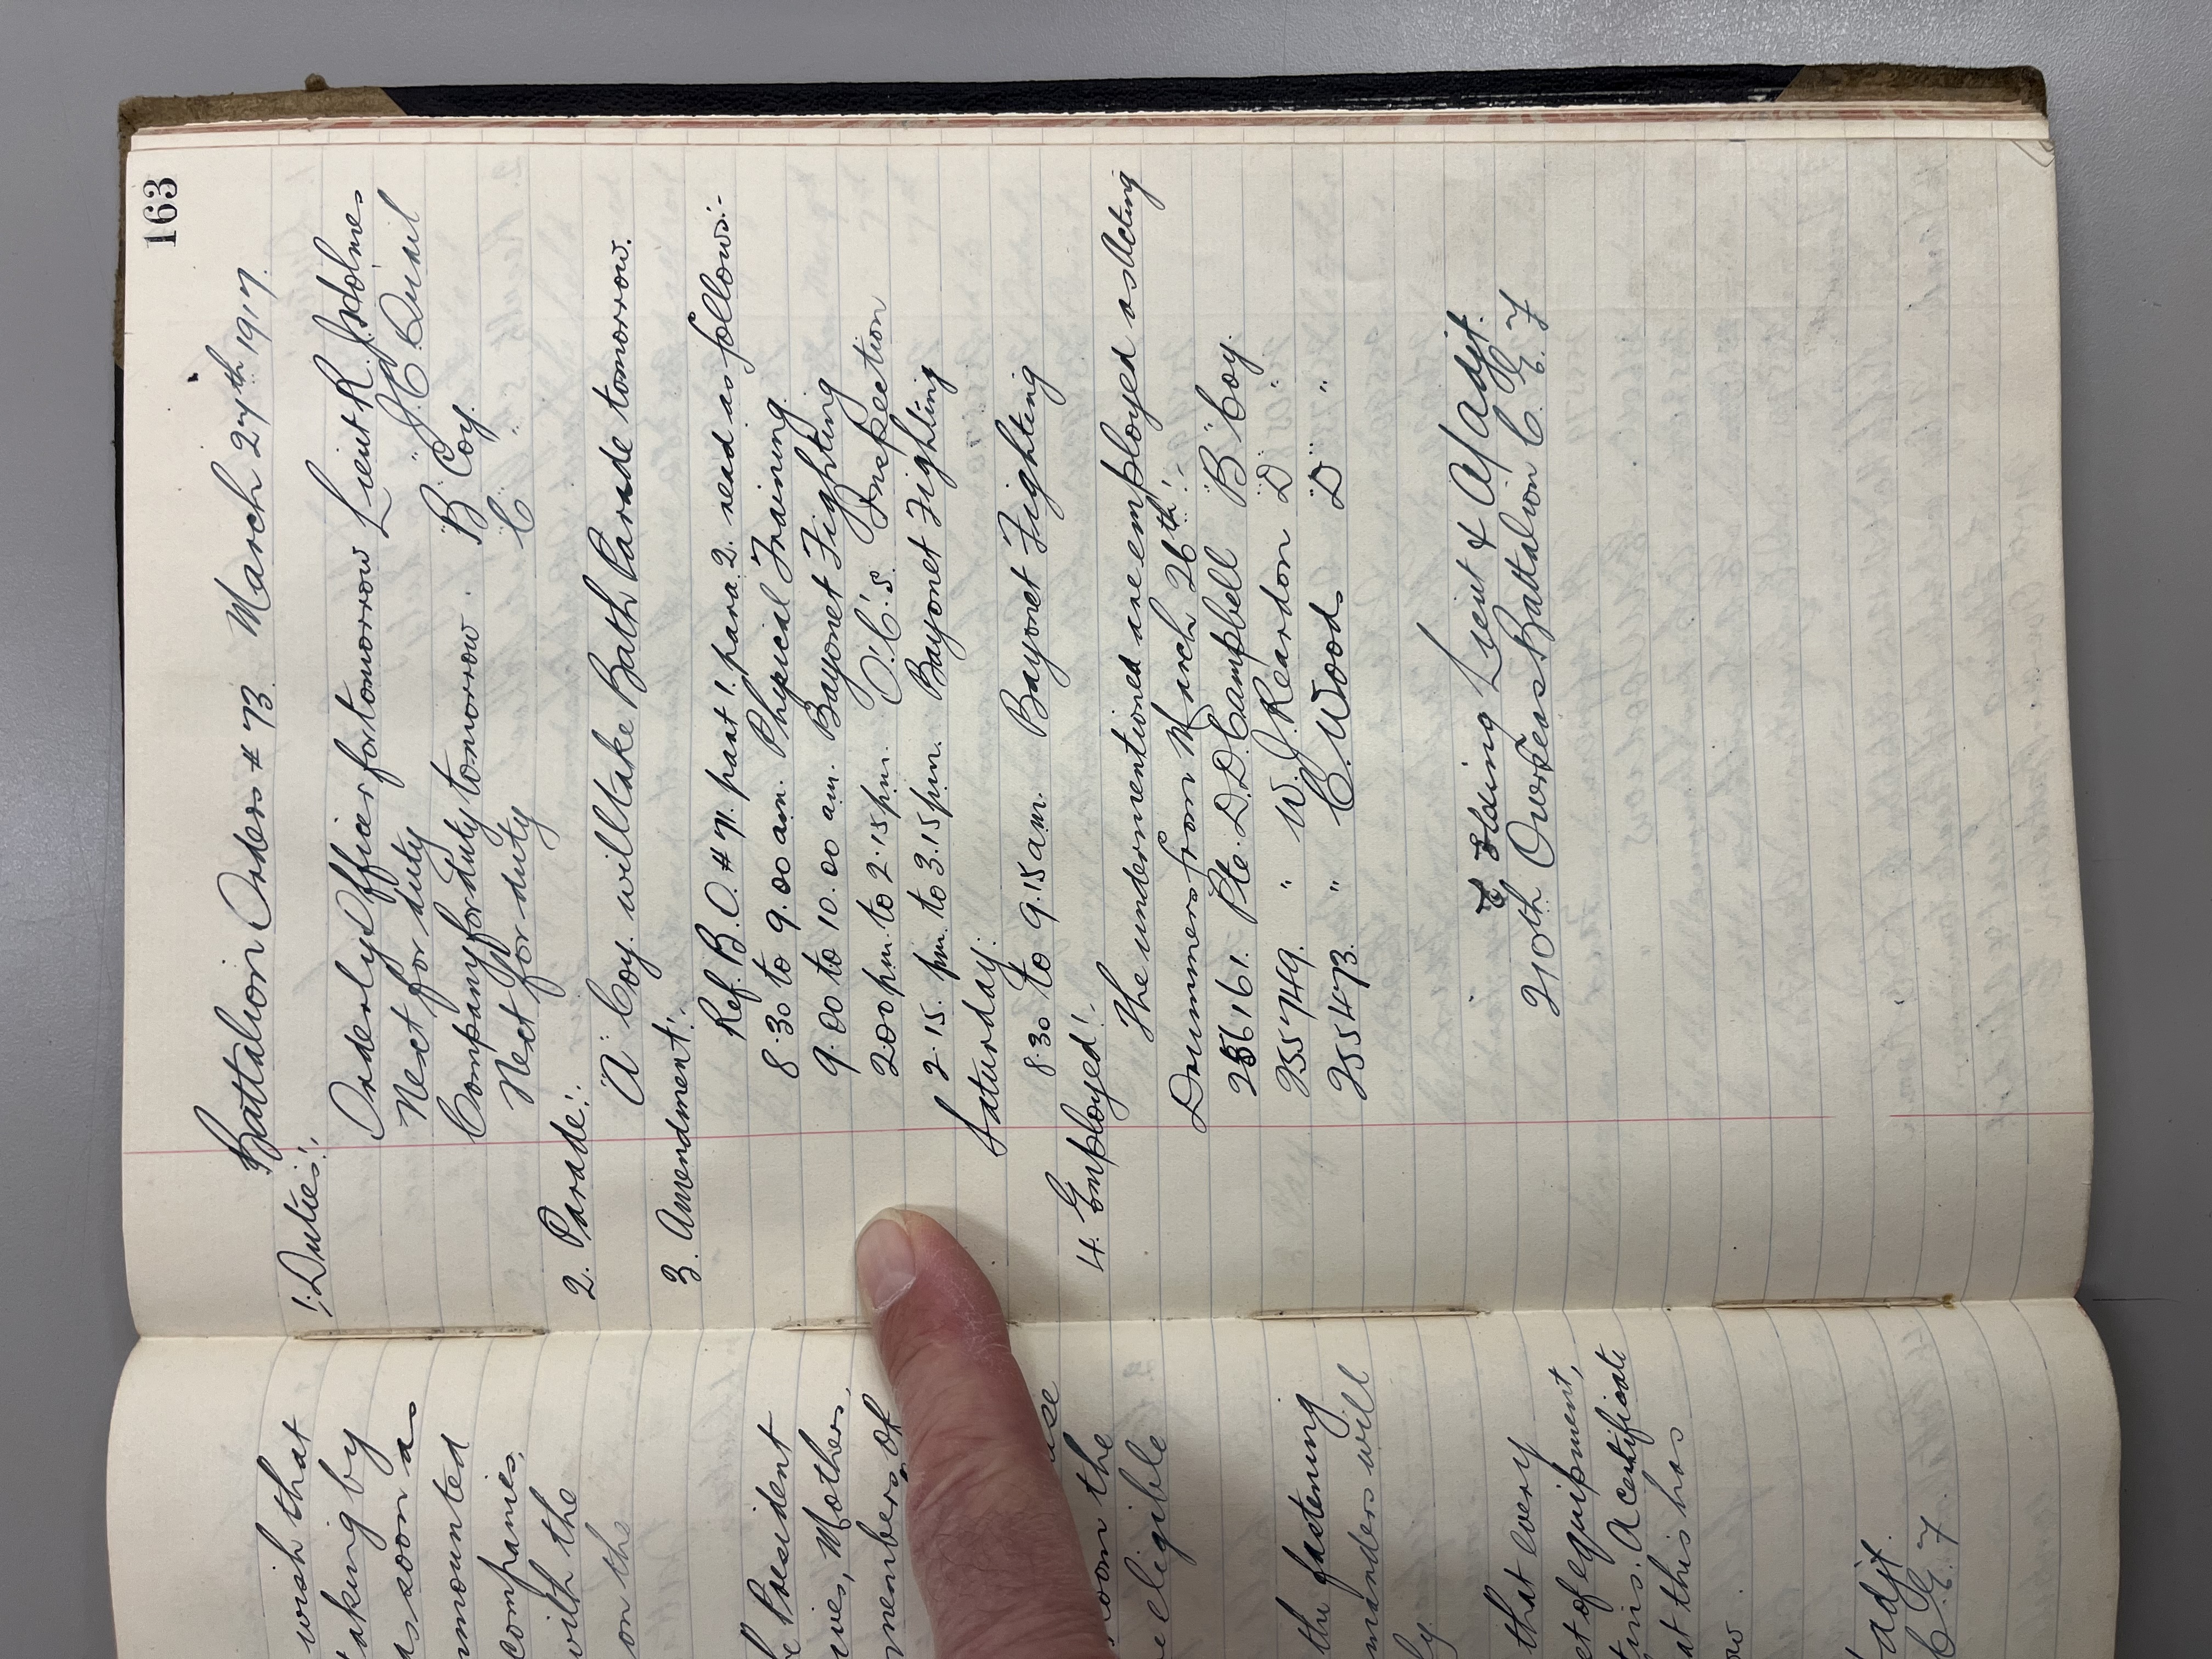 163
Battalion Orders # 73. March 27th 1917.
1. Duties:
Orderly Officer for tomorrow Lieut R. J. Holmes
Next for duty " J. C. Quail
Company for duty tomorrow. "B" Coy.
Next for duty "C" "
2. Parade:
"A" Coy. will take Bath Parade tomorrow.
3. Amendment:
Ref. B.O. # 71. part 1. para. 2. read as follows:-
8.30 to 9.00 am. Physical Training.
9.00 to 10.00 am. Bayonet Fighting
2.00 p.m. to 2.15 p.m. O.C.'s. Inspection
2.15. pm. to 3.15 pm. Bayonet Fighting
Saturday:
8.30 to 9.15 a.m. Bayonet Fighting
4. Employed:
The undermentioned are employed as Acting
Drummers from March 26th:-
256161. Pte. D.D. Campbell "B" Coy.
255749. " W. J. Reardon "D" "
255473. " C. Woods "D" "
Lieut & A/Adjt.
210th Overseas Battalion C.E.F
wish that
taking by
as soon as
mounted
companies,
with the
on the
President
wives, Mothers,
members of
room the
eligible
the fastening
manders will
that every
set of equipment,
A certificate
at this has
adjt.
C.E.F.